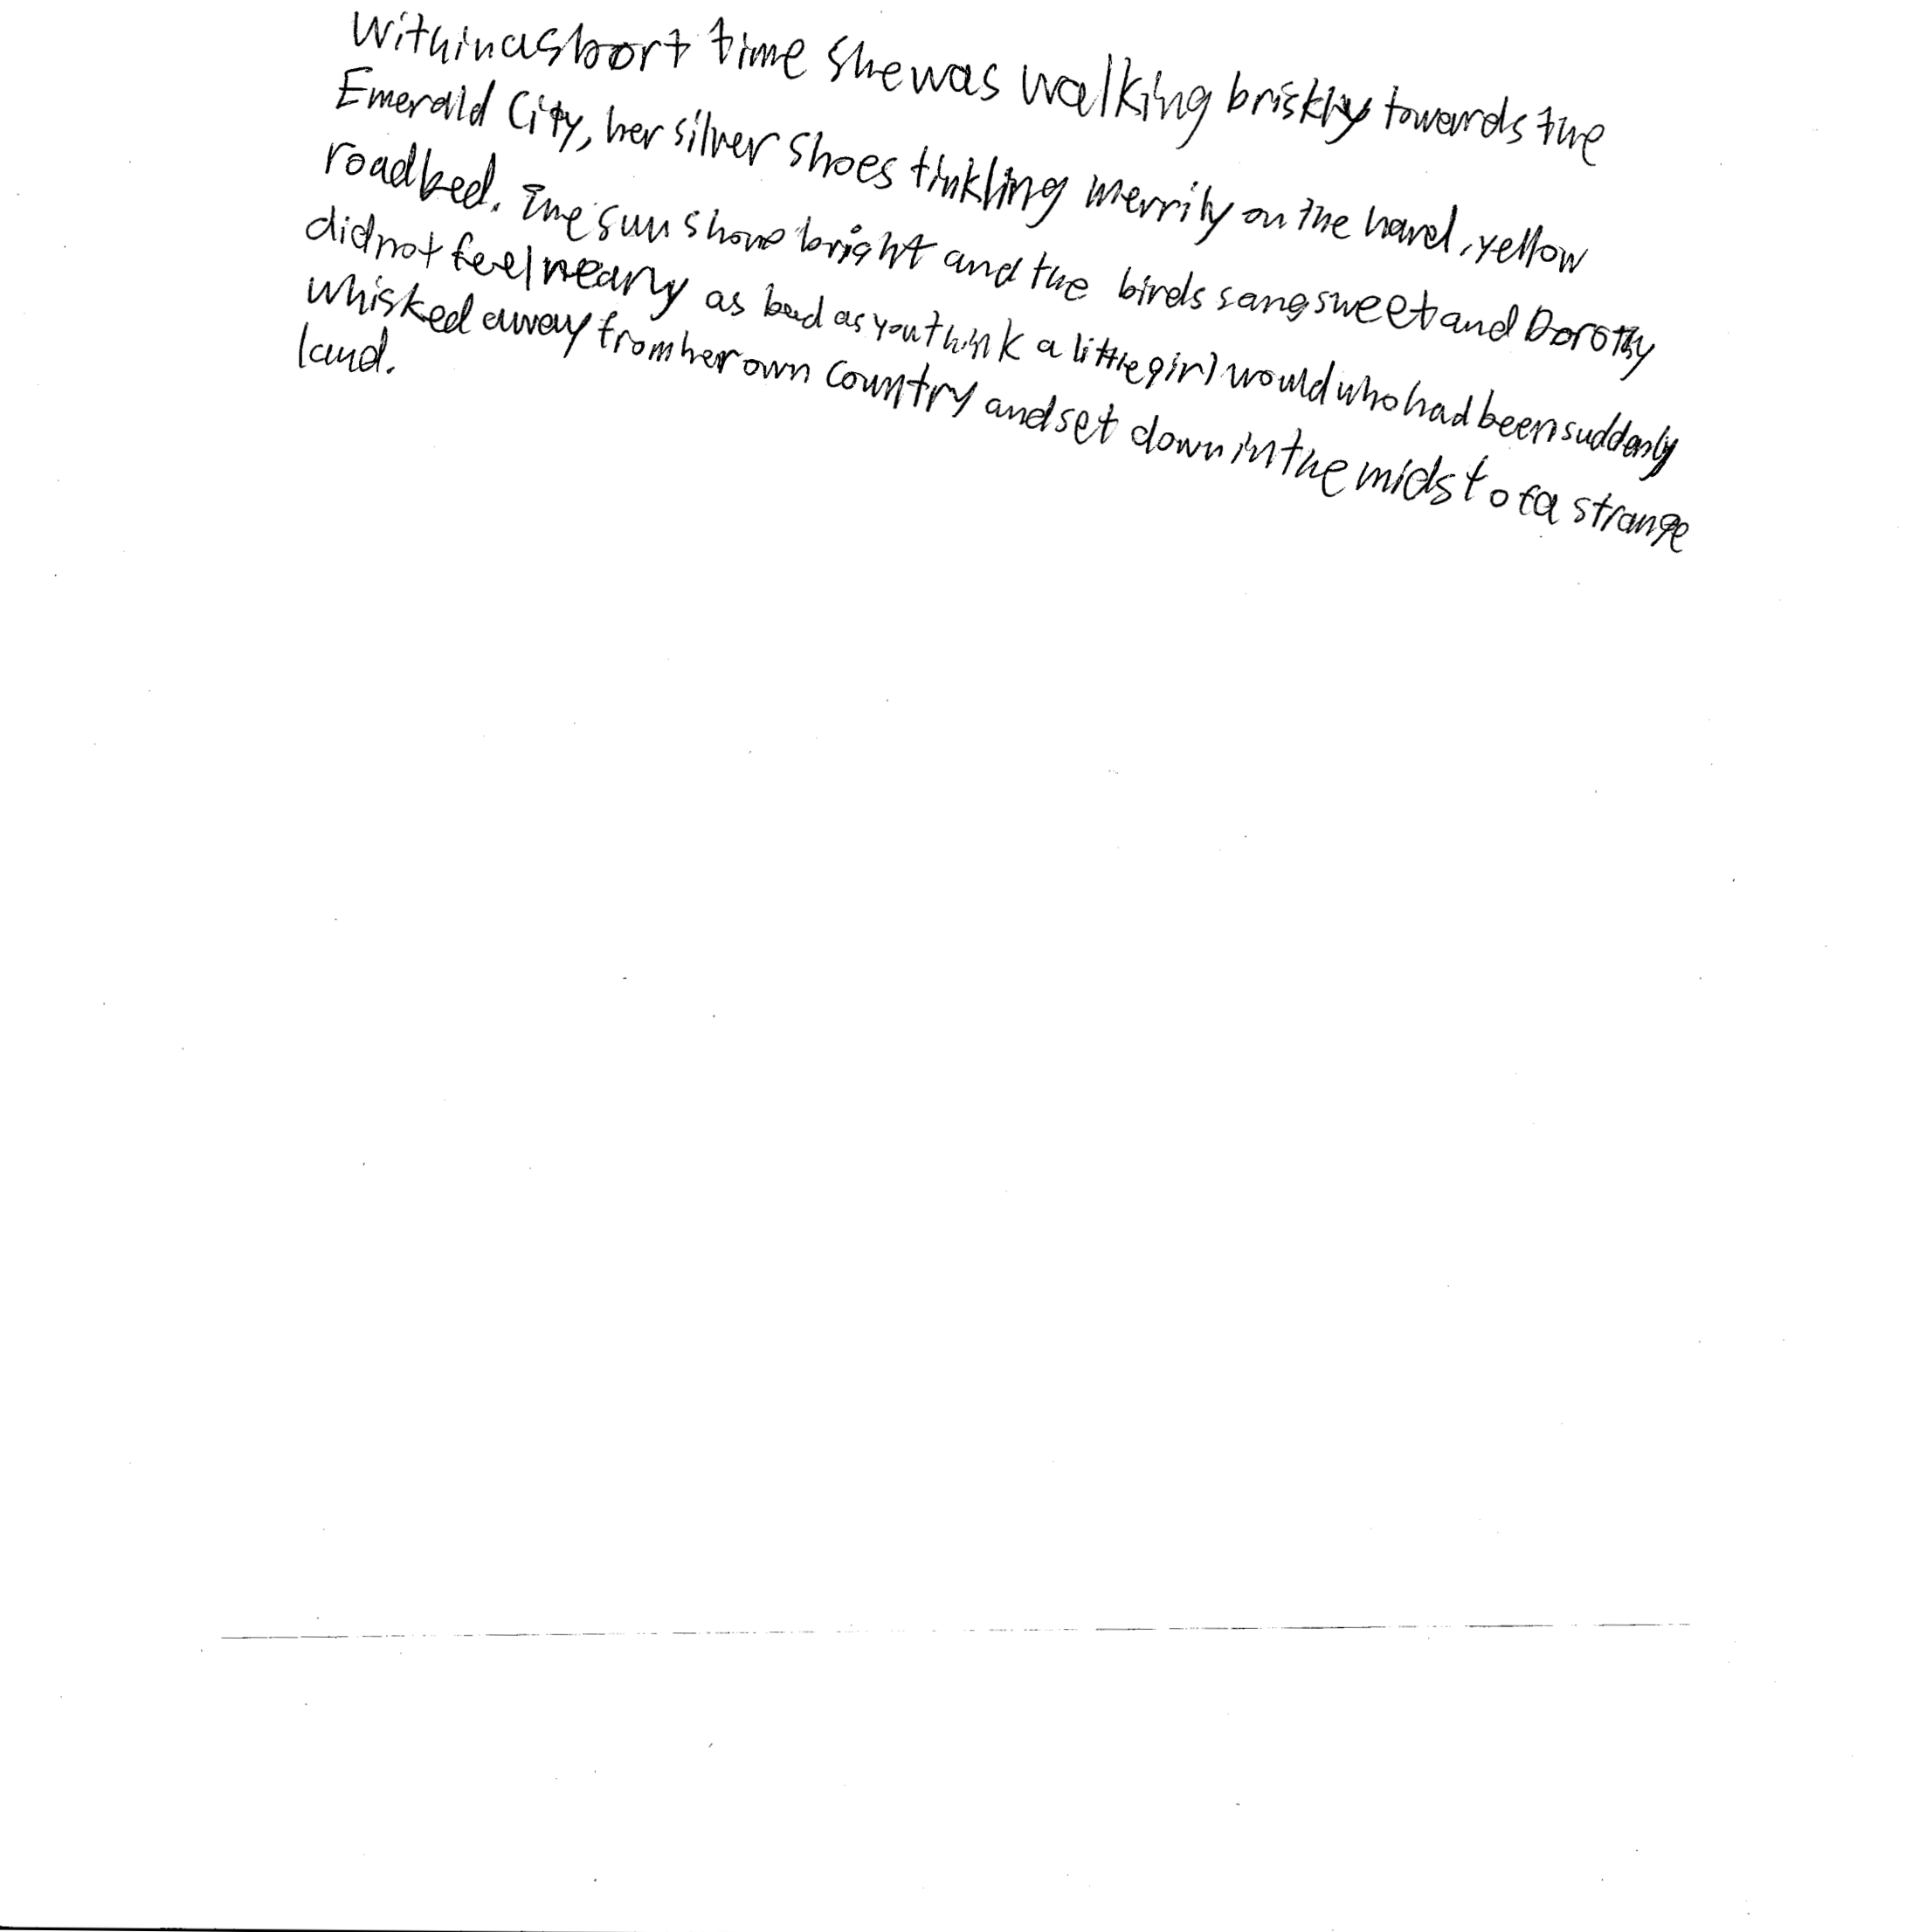 Within a short time she was walking briskly towards the
Emerald City, her silver shoes tinkling merrily on the hard, yellow
roadbed. The sun shone bright and the birds sang sweet and Dorothy
did not feel nearly as bad as you think a little girl would who had been suddenly
whisked away from her own country and set down in the midst of a strange
land.